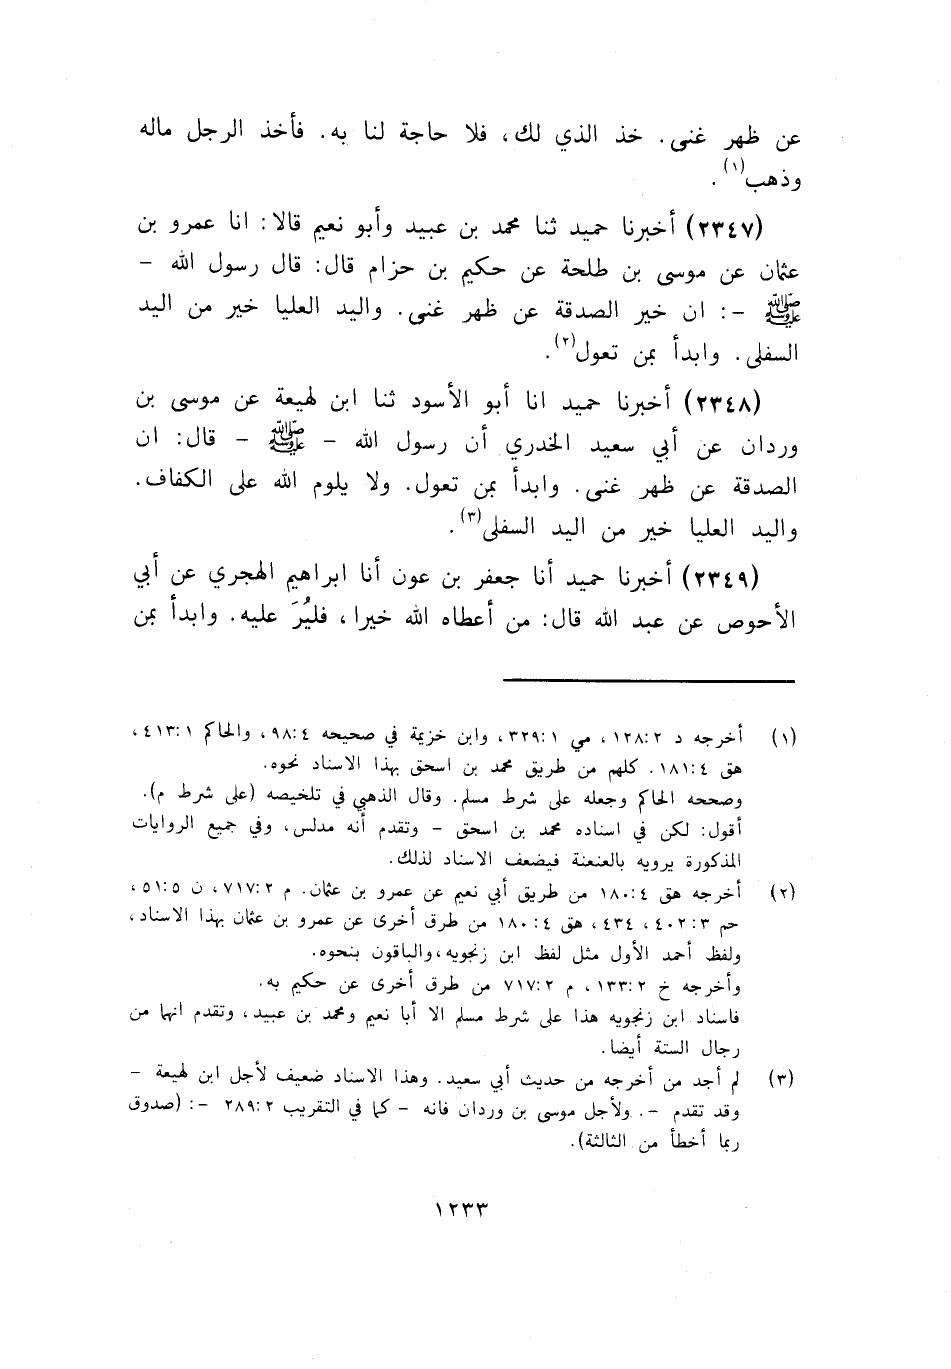 عن ظهر غنى. خذ الذي لك، فلا حاجة لنا به. فأخذ الرجل ماله
وذهب(١).
(٢٣٤٧) أخبرنا حميد ثنا محمد بن عبيد وأبو نعيم قالا: انا عمرو بن
عثمان عن موسى بن طلحة عن حكيم بن حزام قال: قال رسول الله –
ﷺ –: ان خير الصدقة عن ظهر غنى. واليد العليا خير من اليد
السفلى. وابدأ بمن تعول(٢).
(٢٣٤٨) أخبرنا حميد انا أبو الأسود ثنا ابن لهيعة عن موسى بن
وردان عن أبي سعيد الخدري أن رسول الله – ﷺ – قال: ان
الصدقة عن ظهر غنى. وابدأ بمن تعول. ولا يلوم الله على الكفاف.
واليد العليا خير من اليد السفلى(٣).
(٢٣٤٩) أخبرنا حميد أنا جعفر بن عون أنا ابراهيم الهجري عن أبي
الأحوص عن عبد الله قال: من أعطاه الله خيرا، فليُرَ عليه. وابدأ بمن
(١) أخرجه د ٢: ١٢٨، مي ١: ٣٢٩، وابن خزيمة في صحيحه ٤: ٩٨، والحاكم ١: ٤١٣،
هق ٤: ١٨١. كلهم من طريق محمد بن اسحق بهذا الاسناد نحوه.
وصححه الحاكم وجعله على شرط مسلم. وقال الذهبي في تلخيصه (على شرط م).
أقول: لكن في اسناده محمد بن اسحق – وتقدم أنه مدلس، وفي جميع الروايات
المذكورة يرويه بالعنعنة فيضعف الاسناد لذلك.
(٢) أخرجه هق ٤: ١٨٠ من طريق أبي نعيم عن عمرو بن عثمان. م ٢: ٧١٧، ن ٥: ٥١،
حم ٣: ٤٠٢، ٤٣٤، هق ٤: ١٨٠ من طرق أخرى عن عمرو بن عثمان بهذا الاسناد،
ولفظ أحمد الأول مثل لفظ ابن زنجويه، والباقون بنحوه.
وأخرجه خ ٢: ١٣٣، م ٢: ٧١٧ من طرق أخرى عن حكيم به.
فاسناد ابن زنجويه هذا على شرط مسلم الا أبا نعيم ومحمد بن عبيد، وتقدم انهما من
رجال الستة أيضا.
(٣) لم أجد من أخرجه من حديث أبي سعيد. وهذا الاسناد ضعيف لأجل ابن لهيعة –
وقد تقدم –. ولأجل موسى بن وردان فانه – كما في التقريب ٢: ٢٨٩ –: (صدوق
ربما أخطأ من الثالثة).
١٢٣٣